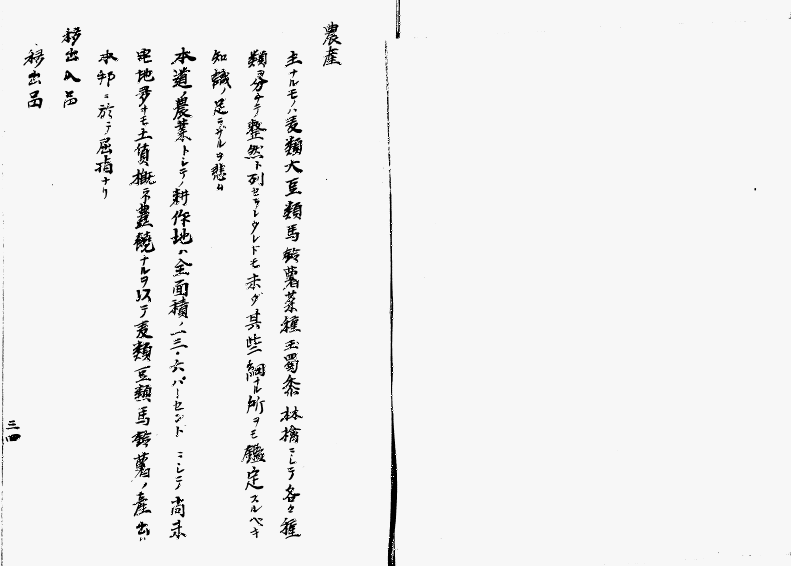 農産
主ナルモノハ麦類大豆類馬鈴薯菜種玉蜀黍林檎ニシテ各々種
類ヲ分チテ整然ト列セラレウレドモ未ダ其些細ナル所ヲモ鑑定スルベキ
知識ノ足ラザルヲ悲ム
本道ノ農業トシテノ耕作地ハ全面積ノ一三・六パーセントニシテ尚未
墾地多キモ土質概ネ豊饒ナルヲ以テ麦類豆類馬鈴薯ノ産出ハ
本邦ニ於テ屈指ナリ
移出入品
移出品
三四